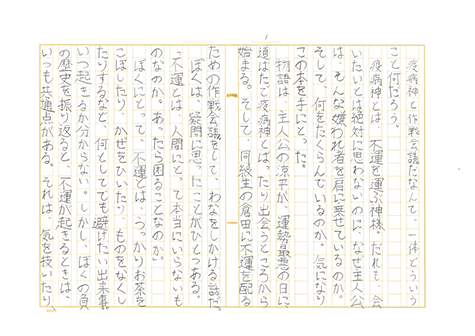 疫病神と作戦会議だなんて、一体どういう
こと何だろう。
疫病神とは、不運を運ぶ神様。だれも、会
いたいとは絶対に思わないのに、なぜ主人公
は、そんな嫌われ者を肩に乗せているのか。
そして、何をたくらんでいるのか。気になり
この本を手にとった。
物語は、主人公の涼平が、運勢最悪の日に、
道ばたで疫病神とばったり出会うところから
始まる。そして、同級生の倉田に不運を配る
ための作戦会議をして、わなをしかける話だ。
ぼくは、疑問に思ったことがひとつある。
「不運とは、人間にとって本当にいらないも
のなのか。あったら困ることなのか。
ぼくにとって、不運とは、うっかりお茶を
こぼしたり、かぜをひいたり、ものをなくし
たりするなど、何としてでも避けたい出来事。
いつ起きるか分からない。しかし、ぼくの負
の歴史を振り返ると、不運が起きるときは、
いつも共通点がある。それは、気を抜いたり、